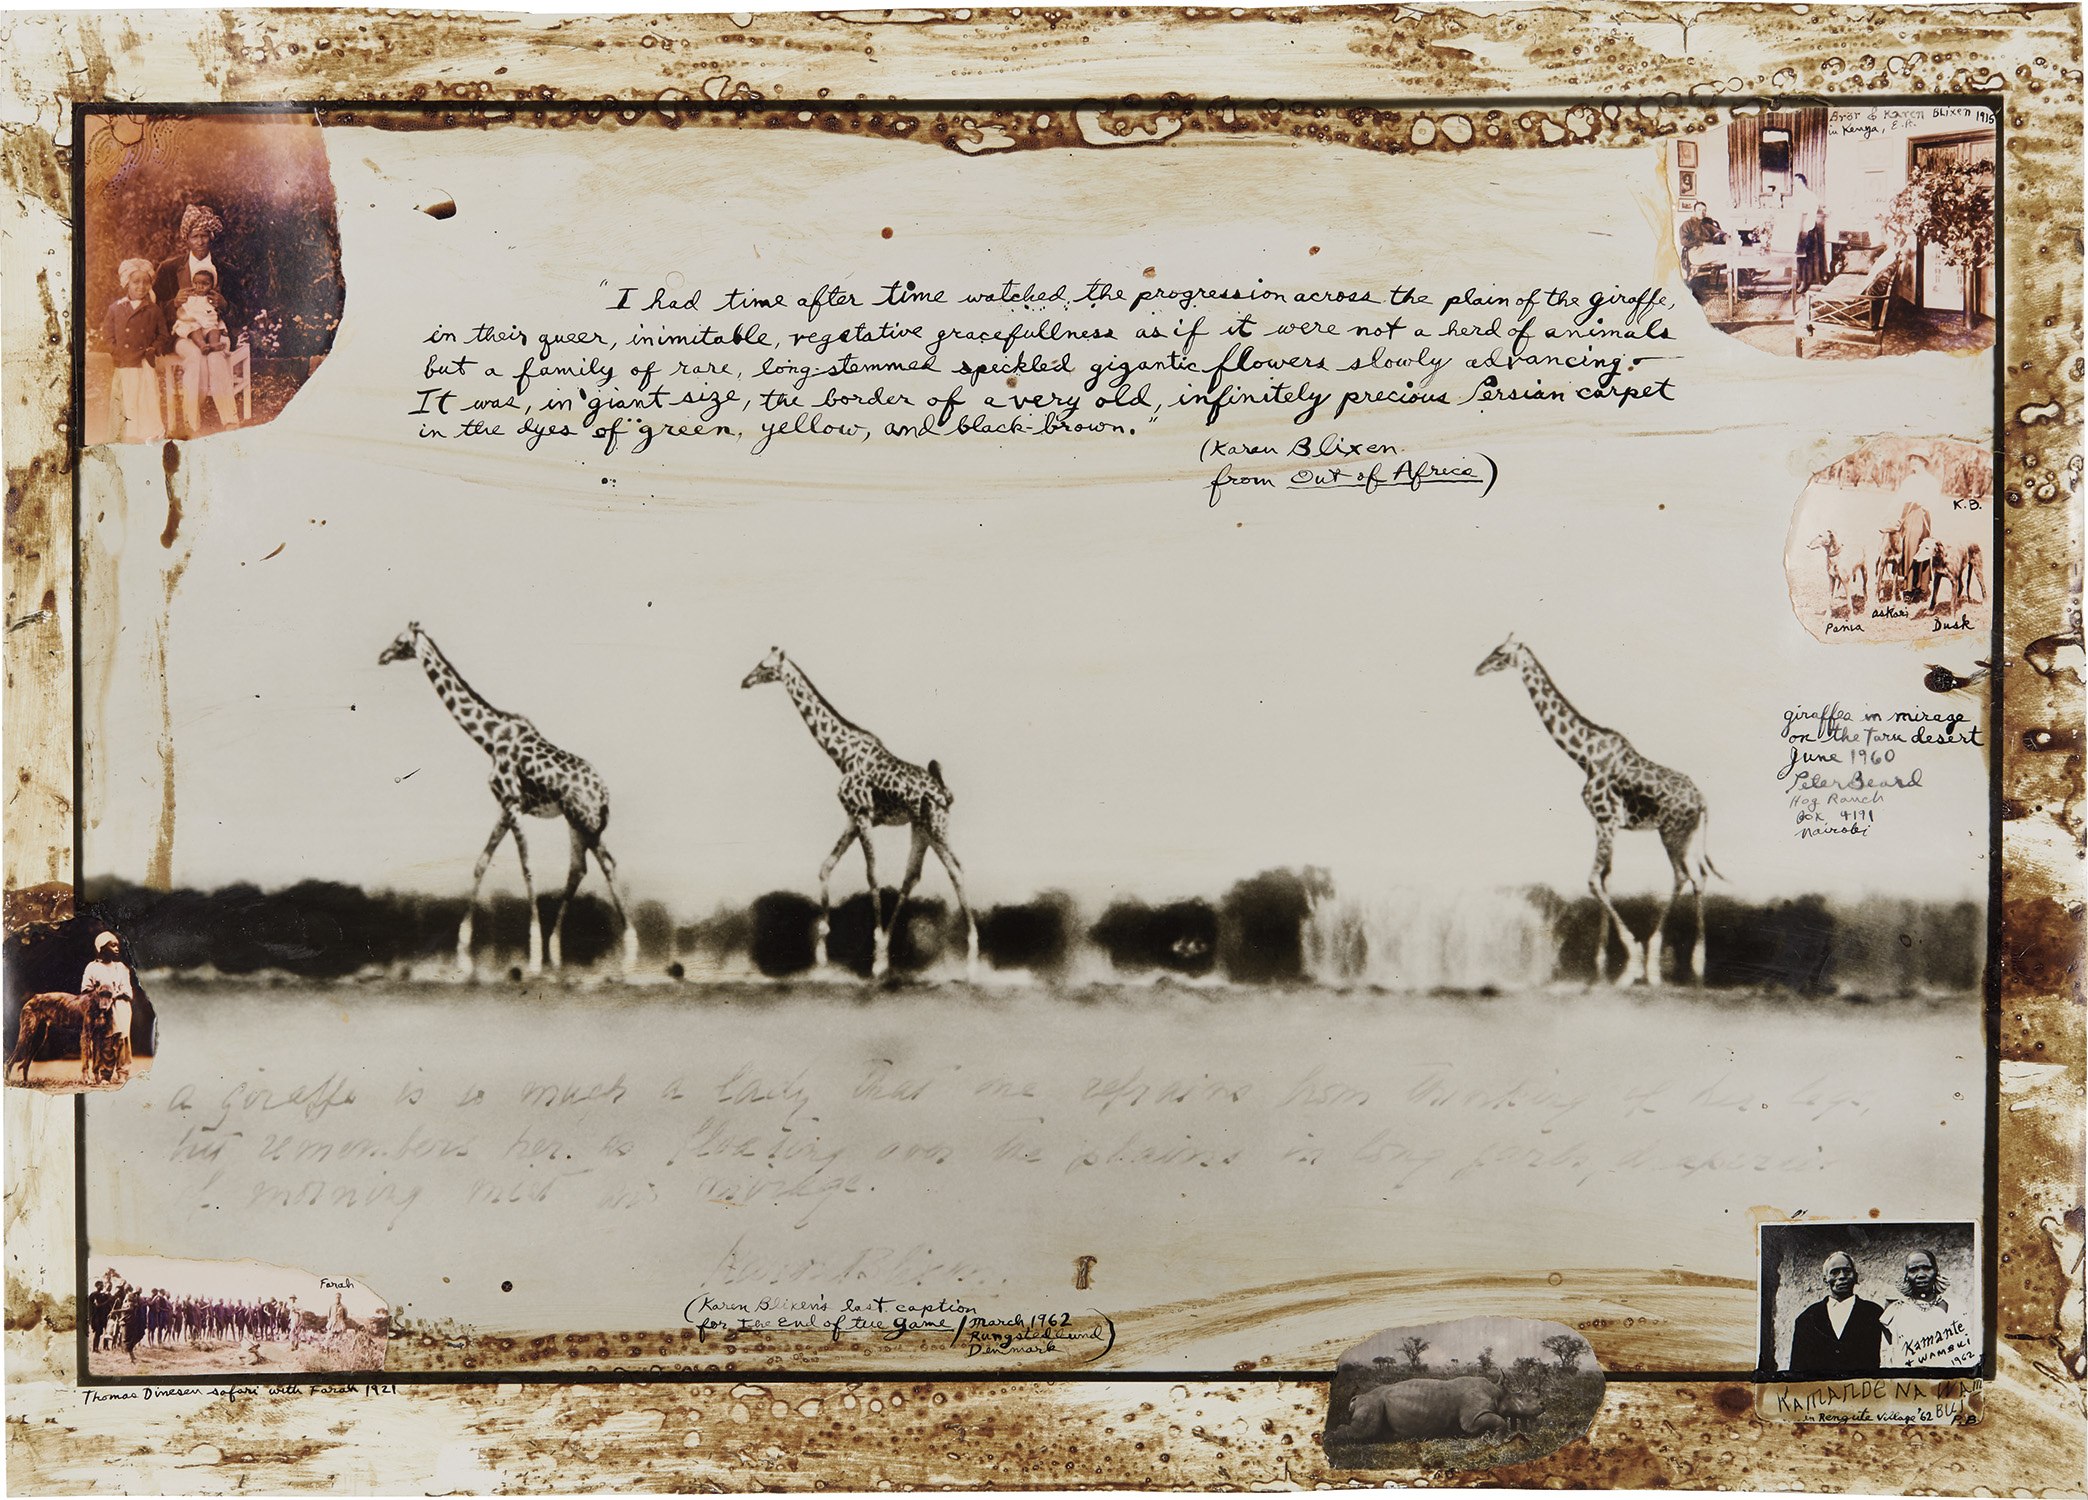 Bror & Karen Blixen 1915
in Kenya, E.A.
"I had time after time watched the progression across the plain of the giraffe,
in their queer, inimitable, vegetative gracefullness as if it were not a herd of animals
but a family of rare, long-stemmed speckled gigantic flowers slowly advancing.
It was, in giant size, the border of a very old, infinitely precious Persian carpet
in the dyes of green, yellow, and black-brown."
(Karen Blixen
from Out of Africa)
K.B.
Pania
askari
Dusk
giraffes in mirage
on the Taru desert
June 1960
Peter Beard
Hog Ranch
Box 4191
Nairobi
a giraffe is so much a lady that one refrains from thinking of her legs,
but remembers her as floating over the plains in long garbs, draperies
of morning mist or mirage.
Karen Blixen.
(Karen Blixen's last caption
for The End of the Game / March 1962
Rungstedlund
Denmark)
Farah
Thomas Dinesen safari with Farah 1921
"Kamante"
+ WAMBUI
1962
KAMANDE NA WAM
BUI
in Rengute Village '62
P.B.